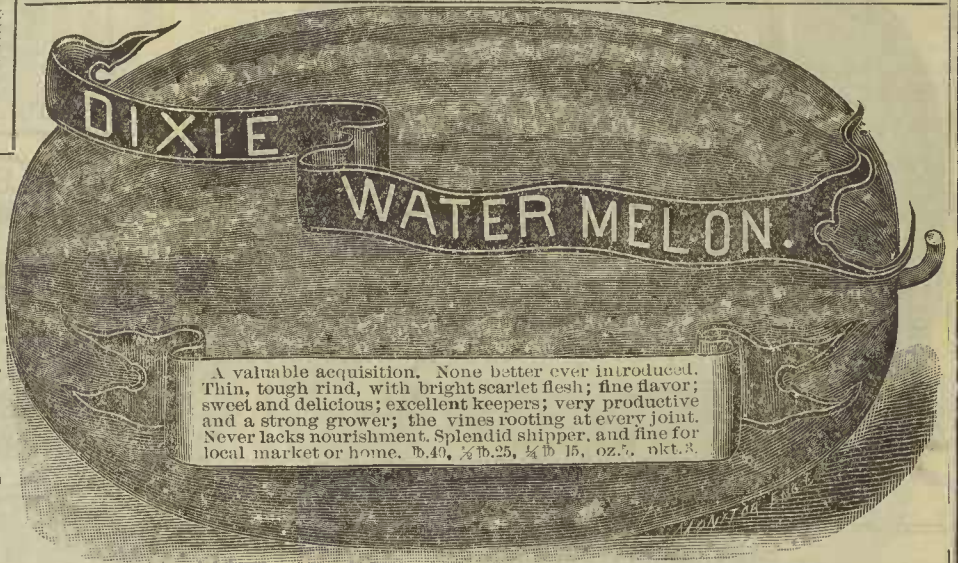 DIXIE
WATER MELON.
A valuable acquisition. None better ever introduced.
Thin, tough rind, with bright scarlet flesh; fine flavor;
sweet and delicious; excellent keepers; very productive
and a strong grower; the vines rooting at every joint.
Never lacks nourishment. Splendid shipper, and fine for
local market or home. ℔.40, ½℔.25, ¼℔ 15, oz.5, pkt.3.
MONITOR ENG